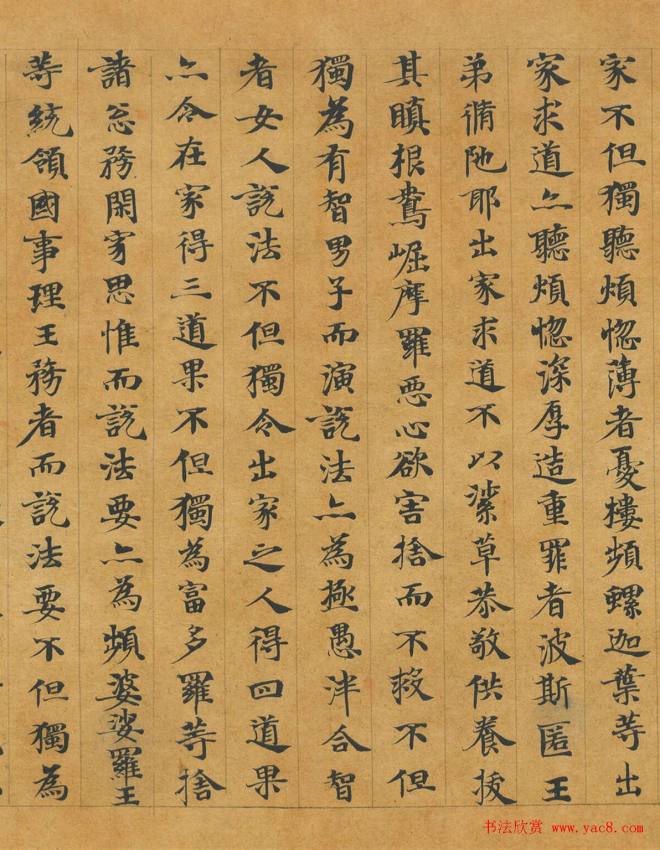 家不但獨聽煩惱薄者憂樓頻螺迦葉等出
家求道亦聽煩惱深厚造重罪者波斯匿王
弟脩陁耶出家求道不以莎草恭敬供養拔
其瞋根鴦崛摩羅惡心欲害捨而不救不但
獨為有智男子而演説法亦為極愚泮合智
者女人説法不但獨令出家之人得四道果
亦令在家得三道果不但獨為富多羅等捨
諸怱務閑寂思惟而説法要亦為頻婆娑羅王
等統領國事理王務者而説法要不但獨為
书法欣赏 www.yac8.com